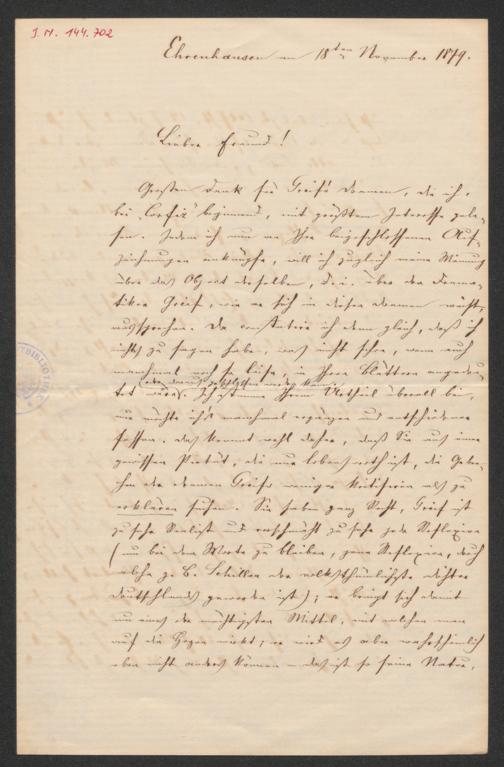 I.N. 144.702
Ehrenhausen am 18ten November 1879.
Lieber Freund!
Großen Dank für Greif's Dramen, die ich,
bei „Corfiz" beginnend, mit größtem Interesse gele-
sen. Indem ich nun an Ihre beigeschlossenen Auf-
zeichnungen anknüpfe, will ich zugleich meine Meinung
über das Object derselben, d. i. über den Drama-
tiker Greif, wie er sich in diesen Dramen zeigt,
aussprechen. Da constatire ich denn gleich, daß ich
nichts zu sagen habe, was nicht schon, wenn auch
manchmal noch so leise, in Ihren Blättern angedeu-
tet
wäre. Ich stimme Ihrem Urtheil überall bei,
nur möchte ich's manchmal ergänzen und entschiedener
fassen. Das kommt wohl daher, daß Sie aus einer
gewissen Pietät, die nur lobenswerth ist, die Gebre-
chen der Dramen Greifs weniger kritisiren als zu
erklären suchen. Sie haben ganz Recht, Greif ist
zu sehr Realist und verschmäht zu sehr jede Reflexion
(um bei dem Worte zu bleiben, jene Reflexion, durch
welche z. B. Schiller der volksthümlichste Dichter
Deutschlands geworden ist); er bringt sich damit
um eines der mächtigsten Mittel, mit welchen man
auf die Herzen wirkt; er wird es aber wahrscheinlich
eben nicht anders können – das ist so seine Natur,